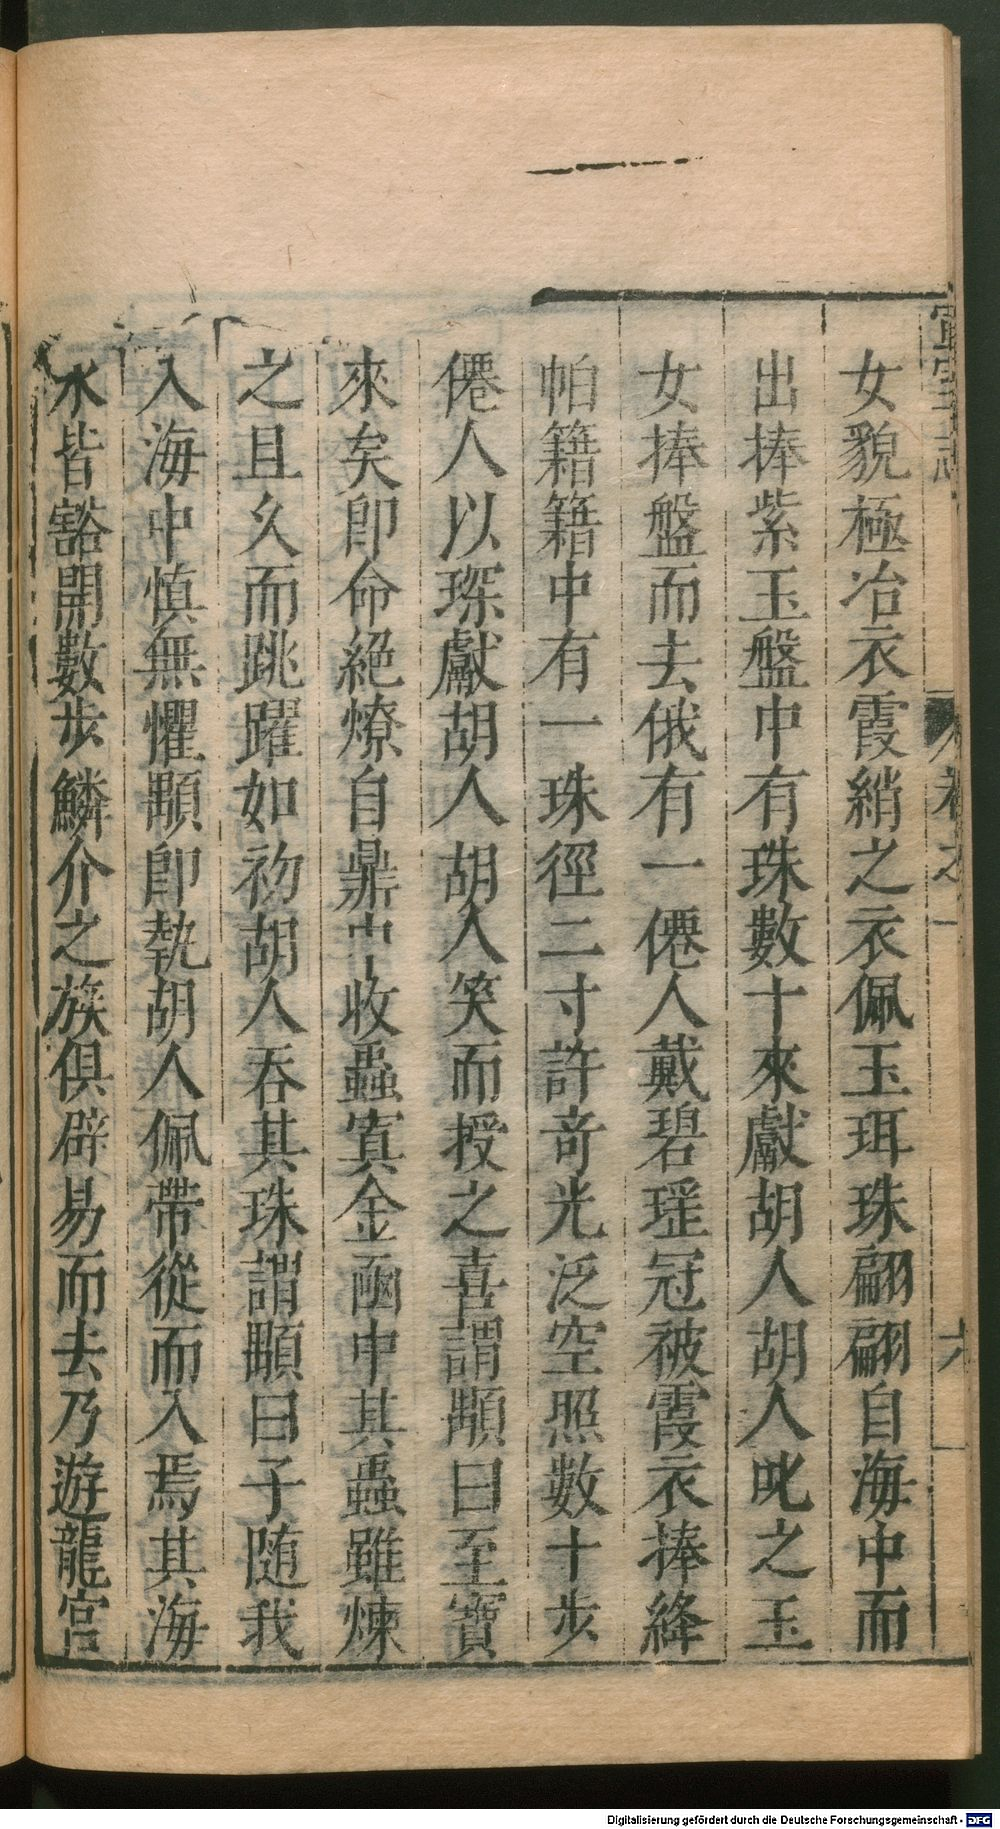 女貌極冶衣霞綃之衣佩玉珥珠翩翩自海中而
出捧紫玉盤中有珠數十來獻胡人胡人叱之玉
女捧盤而去俄有一僊人戴碧瑶冠被霞衣捧絳
帕籍籍中有一珠徑二寸許竒光泛空照數十步
僊人以琛獻胡人胡人笑而授之喜謂顒曰至寶
來矣即命絕燎自鼎中收蟲寘金函中其蟲雖煉
之且久而跳躍如初胡人吞其珠謂顒曰子随我
入海中慎無懼顒即執胡人佩帶從而入焉其海
水皆豁開數步鱗介之族俱辟易而去乃遊龍宮
宣室志
卷之一
六
Digitalisierung gefördert durch die Deutsche Forschungsgemeinschaft - DFG